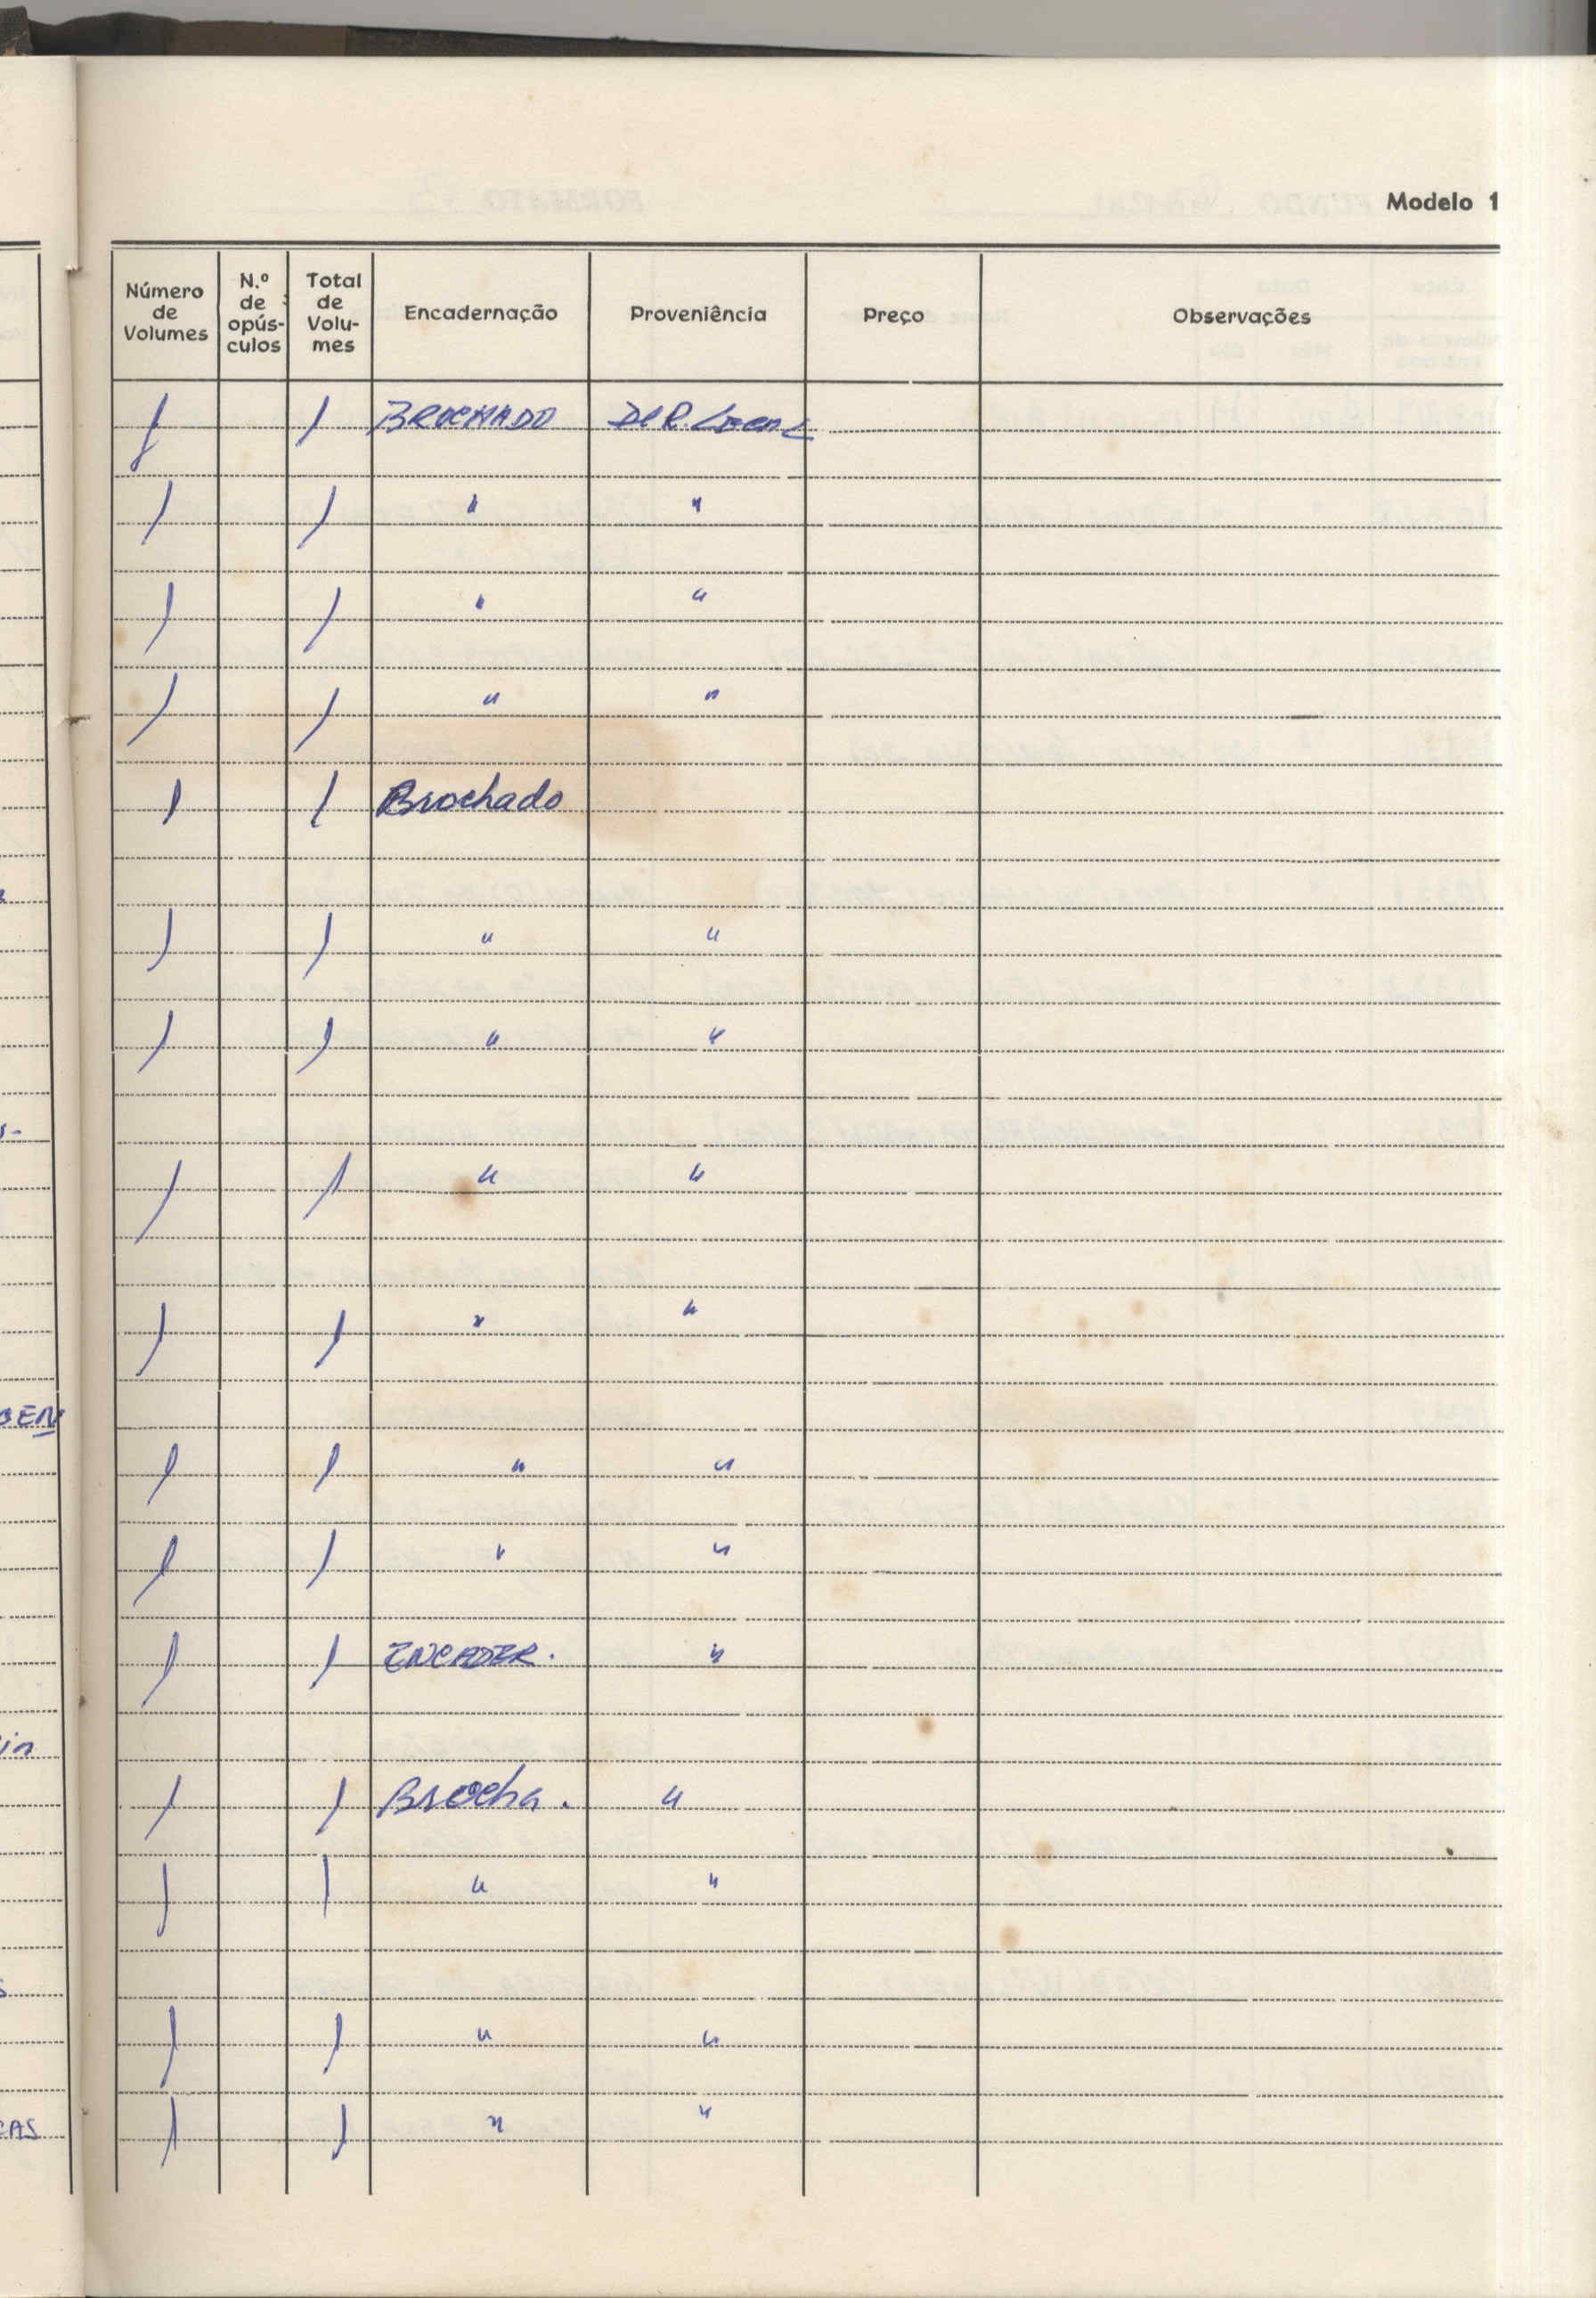 Modelo 1
Número de Volumes | N.º de opús-culos | Total de Volu-mes | Encadernação | Proveniência | Preço | Observações
1 | 1 | BROCHADO | DEP. LEGAL
1 | 1 | " | "
1 | 1 | " | "
1 | 1 | " | "
1 | 1 | Brochado
1 | 1 | " | "
1 | 1 | " | "
1 | 1 | " | "
1 | 1 | " | "
GEN
1 | 1 | " | "
1 | 1 | " | "
1 | 1 | ENCADER. | "
in
1 | 1 | Brocha. | "
1 | 1 | " | "
1 | 1 | " | "
CAS
1 | 1 | " | "